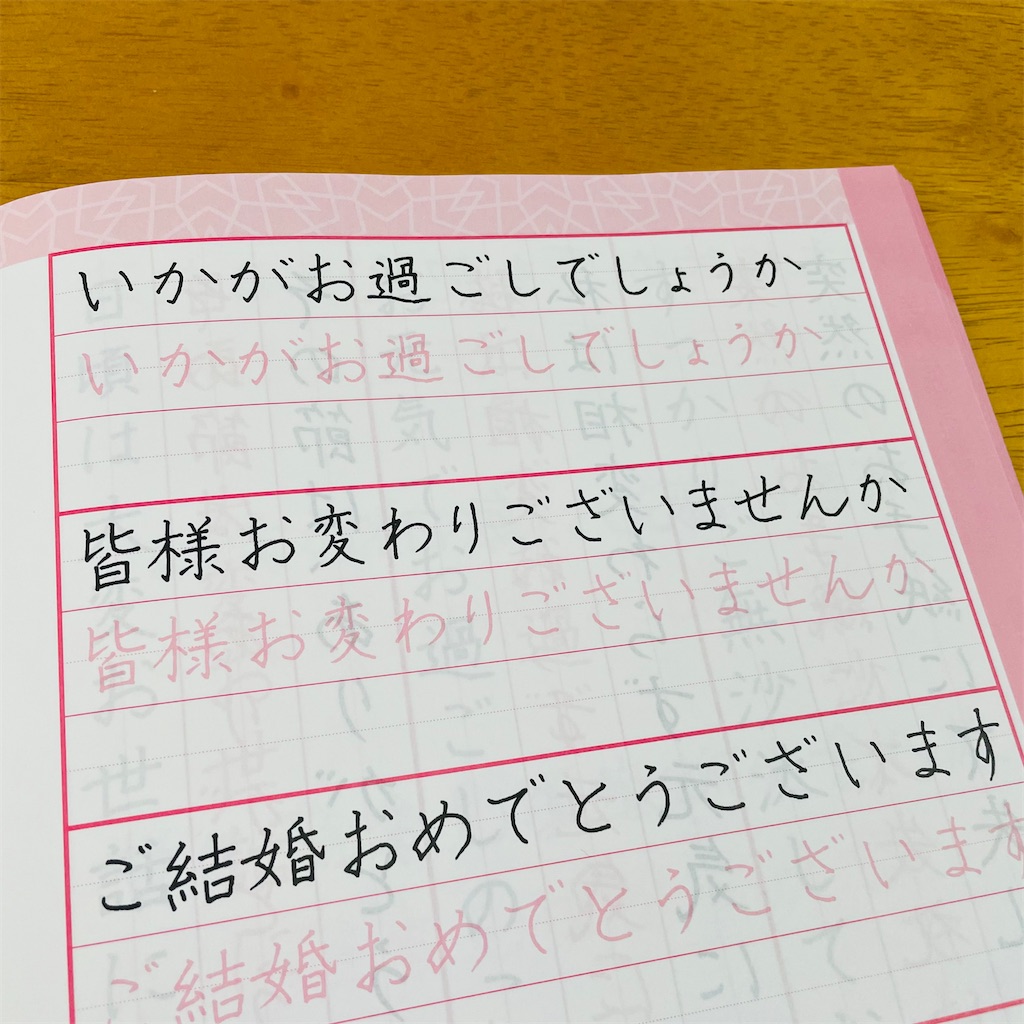 いかがお過ごしでしょうか
いかがお過ごしでしょうか
皆様お変わりございませんか
皆様お変わりございませんか
ご結婚おめでとうございます
ご結婚おめでとうございます